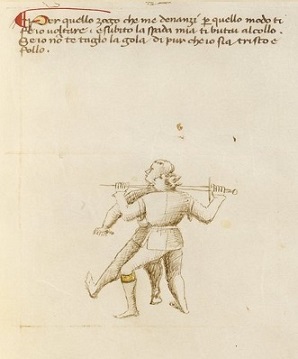 Per quello zogo che me denanzi per quello modo ti
fazo voltare e subito la spada mia ti butai al collo.
Se io no te taglo la gola di pur che io sia tristo e
follo.